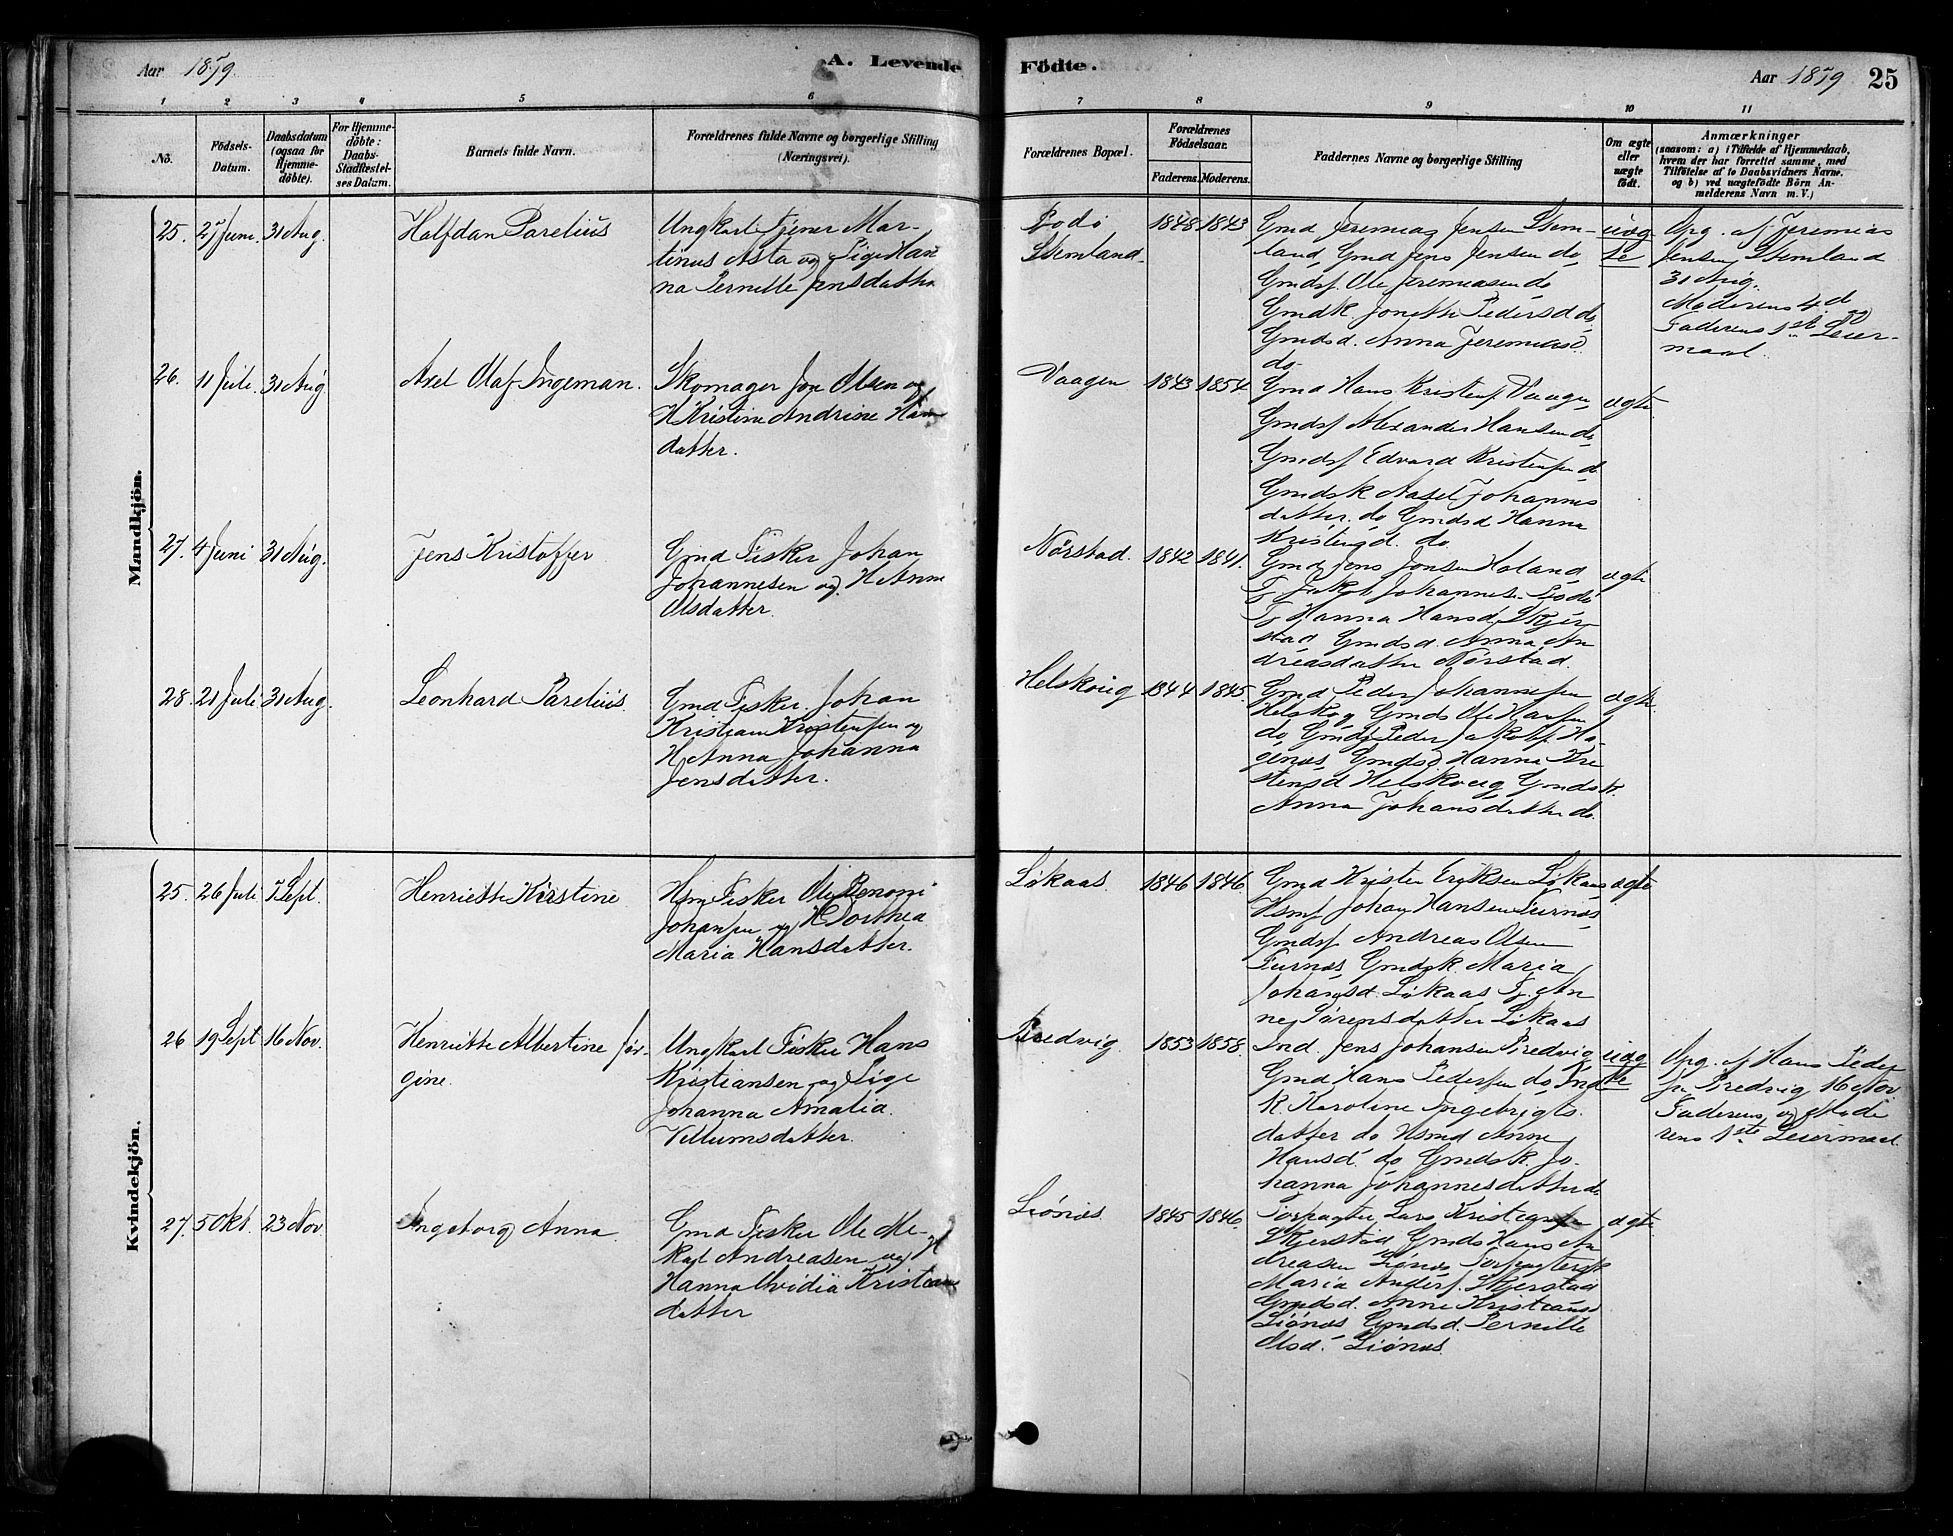 Aar 1879. A. Levende Födte. Aar 1879 25
1 2 3 4 5 6 7 8 9 10 11
Nō.
Födsels-
Datum.
Daabsdatum
(ogsaa for
Hjemme-
döbte).
For Hjemme-
döbte:
Daabs-
Stadfæstel-
ses Datum.
Barnets fulde Navn.
Forældrenes fulde Navne og borgerlige Stilling
(Næringsvei).
Forældrenes Bopæl.
Forældrenes
Födselsaar.
Faderens. Moderens.
Faddernes Navne og borgerlige Stilling
Om ægte
eller
uægte
födt.
Anmærkninger
(saasom: a) i Tilfælde af Hjemmedaab,
hvem der har forrettet samme, med
Tilföielse af to Daabsvidners Navne.
og b) ved uægtefödte Börn An-
melderens Navn m. V.)
Mandkjön.
25. 27 Juni. 31 Aug. Halfdan Parelius
Ungkarl Tjener Mar-
tinus Asta og Pige Han
na Pernille Jensdatter
Bodö
Skemland.
1848 1843
Gmd Jeremias Jensen Skem-
land, Gmd Jens Jensen do,
Gmdsf. Ole Jeremiasen do
Gmdk. Jonette Pedersd do
Gmdsd. Anna Jeremiasd
do.
uæg
te
Opg. af Jeremias
Jensen Skemland
31 Aug.
Moderens 4de
Faderens 1ste Leier-
maal.
26. 11 Juli. 31 Aug. Axel Olaf Ingeman.
Skomager Jon Olsen og
H Kristine Andrine Han
datter.
Vaagen 1843 1854.
Gmd Hans Kristensf. Vaagen,
Gmdsf Alexander Hansen do,
Gmdsf Edvard Kristensen d.
Gmdsk Aasel Johannes
datter. do Gmdsd Hanna
Kristensd. do.
ægte
27. 4 Juni 31 Aug. Jens Kristoffer
Gmd Fisker Johan
Johannesen og H Anne
Olsdatter.
Nörstad. 1842 1841.
Gmd Jens Jonsen Holand
Tj. Jakob Johannes. Bodö
Tj Hanna Hansd. Skjer
stad Gmdsd. Anna An
dreasdatter Nörstad.
ægte
28. 21 Juli 31 Aug. Leonhard Parelius.
Gmd Fisker. Johan
Kristian Kristensen og
H Anna Johanna
Jensdatter.
Helskoug 1844 1845.
Gmd Peder Johannesen
Helskog Gmds Ole Hansen
do, Gmdsf Peder Jakobs. Ha-
genæs, Gmdsd. Hanna Kri
stensd Helskoug Gmdsk.
Anna Johansdatter do.
ægte.
Kvindekjön.
25. 26 Juli 7 Sept. Henriette Kirstine
Hsm Fisker Ole Benoni
Johansen og H Dorthea
Maria Hansdatter.
Lökaas. 1846 1846.
Gmd Kristen Eriksen Lökaas
Hsmf Johan Hansen Furnæs
Gmdsf. Andreas Olsen
Furnæs, Gmdsk. Maria
Johansd. Lökaas Tj. An
ne Sörensdatter Lökaas
ægte
26 19 Sept 16 Nov. Henriette Albertine Jör-
gine.
Ungkarl Fisker Hans
Kristiansen og Pige
Johanna Amalia.
Villumsdatter.
Bredvig 1853 1858.
Ind. Jens Johansen Bredvig
Gmd Hans Pedersen do, Ind
k. Karoline Ingebrigts
datter do Hsmd Anne
Hansd. do Gmdsk. Jo-
hanna Johannesdatter do
uæg
te
Opg. af Hans Peder
sen Bredvig 16 Nov.
Faderens og Mode
rens 1ste Leiermaal.
27. 5 Okt. 23 Nov. Ingeborg Anna.
Gmd Fisker Ole Mi-
kal Andreasen og H
Hanna Ovidia Kristians
datter
Liönæs 1845 1846.
Forpagter Lars Kristiansen
Skjerstad Gmds Hans An
dreasen Liönæs Forpagtersk
Maria Andersd. Skjerstad
Gmdsd. Anne Kristiansd
Liönæs Gmdsd. Pernille
Olsd. Liönæs.
ægte